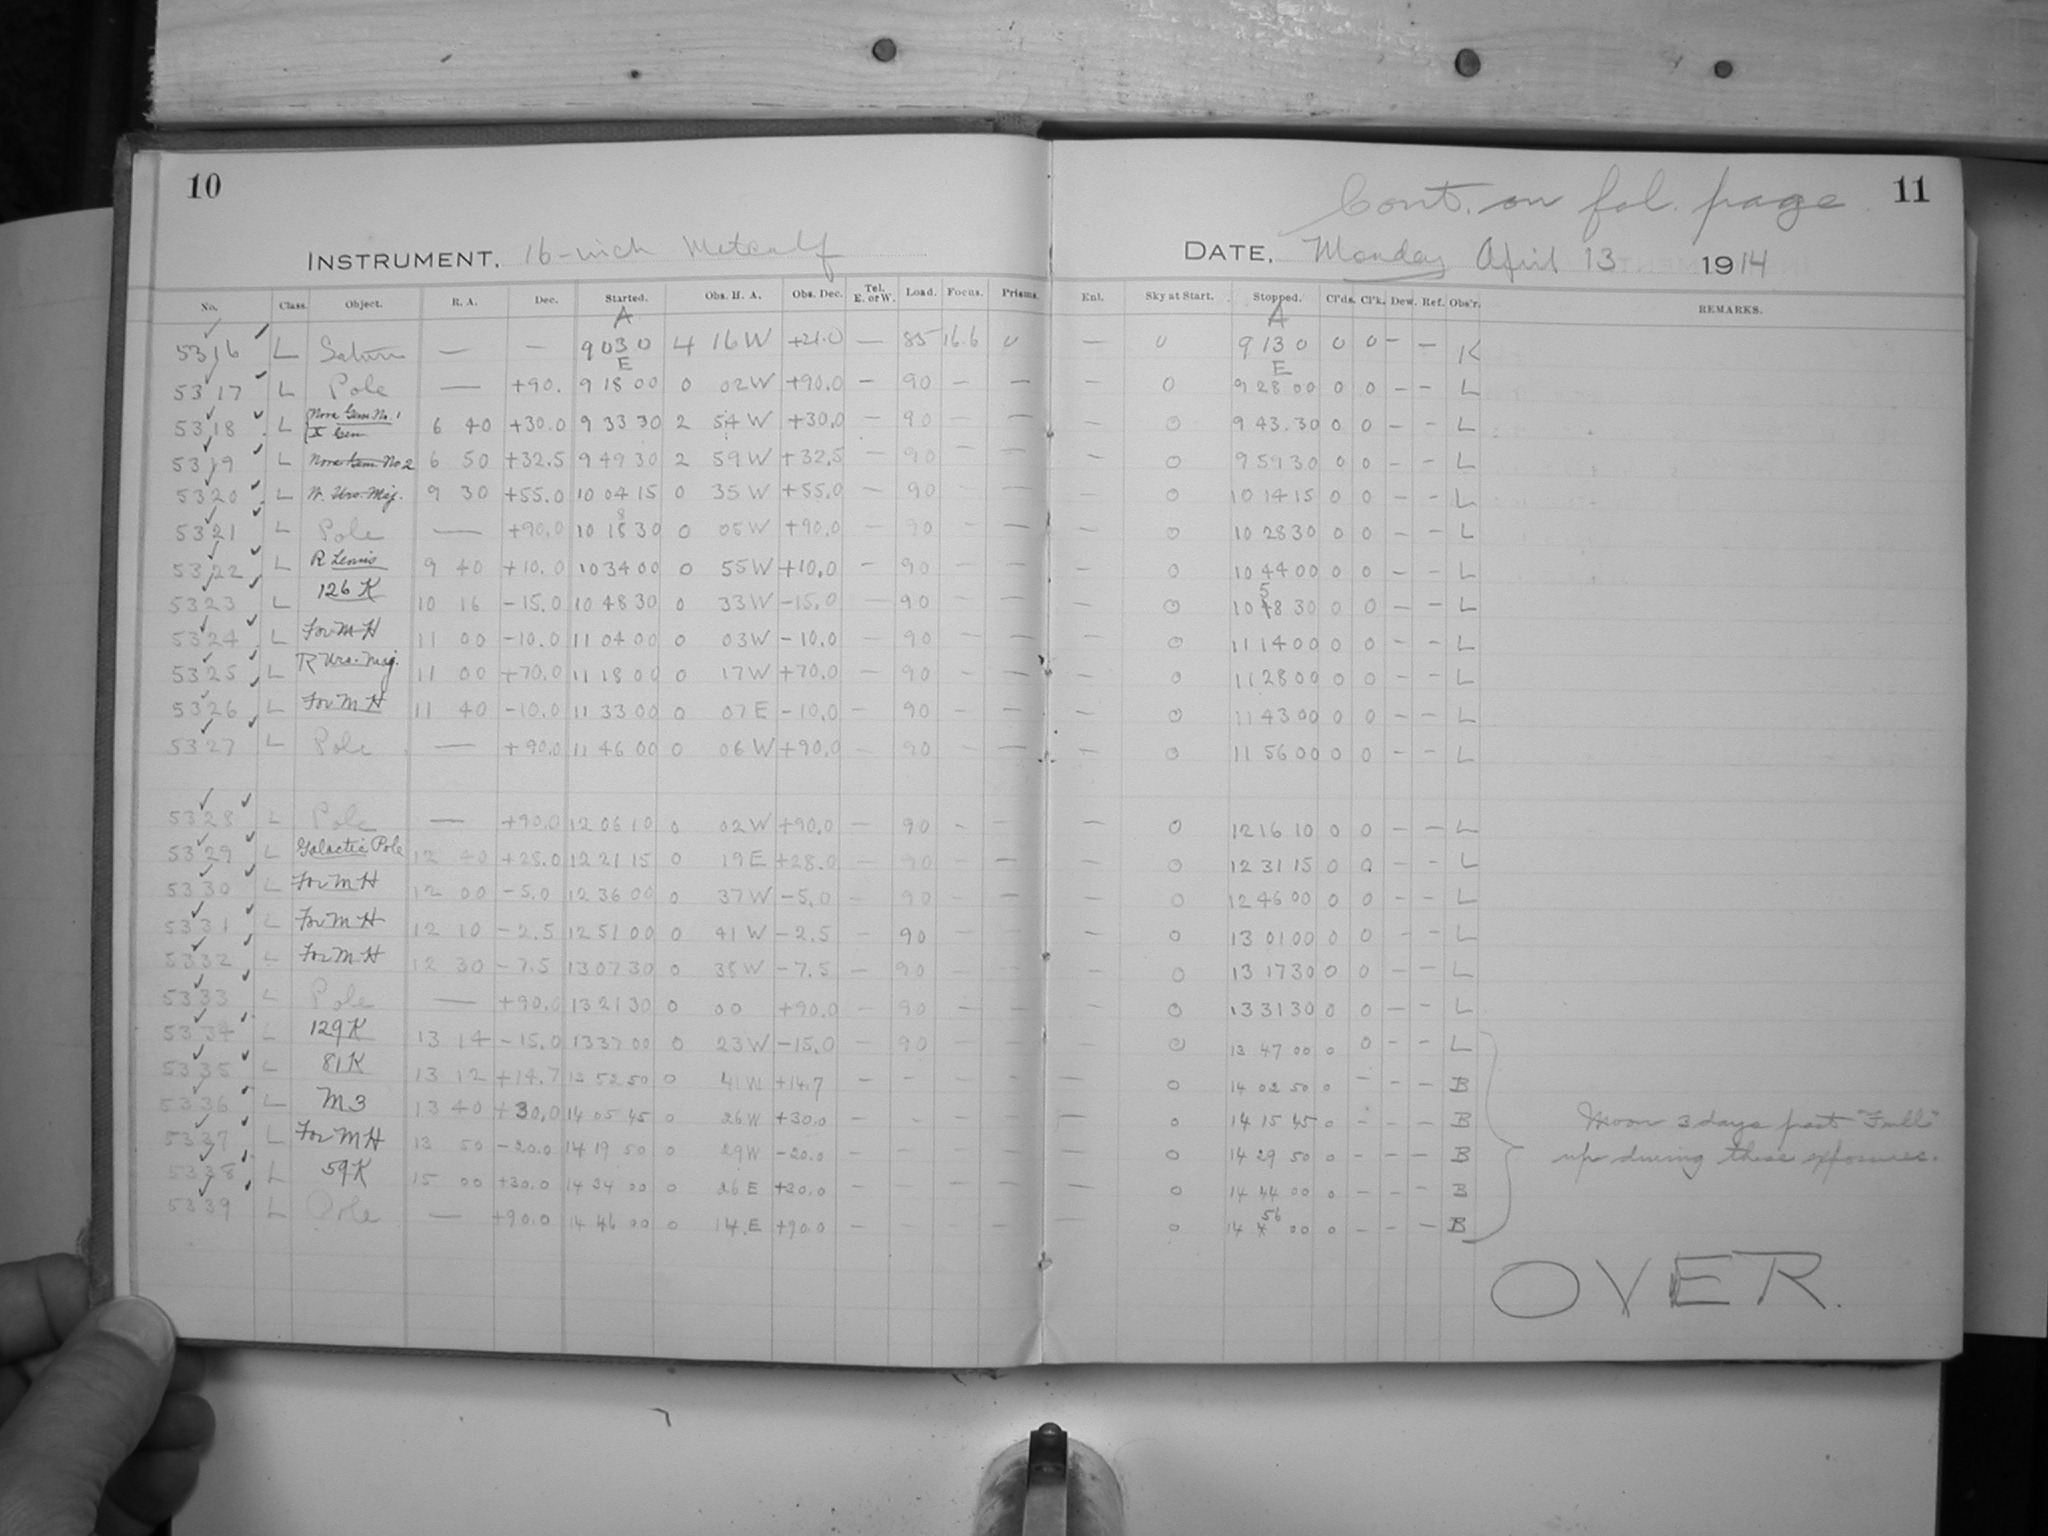 10
11
Cont. on fol. page
INSTRUMENT. 16-inch Metcalf
DATE. Monday April 13 1914
No. Class. Object. R. A. Dec. Started. Obs. H. A. Obs. Dec. Tel. E. or W. Load. Focus. Prisms. Enl. Sky at Start. Stopped. Cl'ds. Cl'k. Dew. Ref. Obs'r. REMARKS.
A A
5316 L Saturn — — 9 03 0 4 16 W +21.0 — 85 16.6 0 — 0 9 13 0 0 0 – – K
E E
5317 L Pole — +90. 9 18 00 0 02 W +90.0 – 90 – – – 0 9 28 00 0 0 – – L
5318 L Nova Gem No. 1 6 40 +30.0 9 33 30 2 54 W +30.0 – 90 – – – 0 9 43.30 0 0 – – L
X Gem
5319 L Nova Gem. No 2 6 50 +32.5 9 49 30 2 59 W +32.5 – 90 – – – 0 9 59 30 0 0 – – L
5320 L N. Urs. Maj. 9 30 +55.0 10 04 15 0 35 W +55.0 – 90 – – – 0 10 14 15 0 0 – – L
5321 L Pole — +90.0 10 18 30 0 05 W +90.0 – 90 – – – 0 10 28 30 0 0 – – L
5322 L R Leonis 9 40 +10.0 10 34 00 0 55 W +10.0 – 90 – – – 0 10 44 00 0 0 – – L
5323 L 126 K 10 16 –15.0 10 48 30 0 33 W –15.0 – 90 – – – 0 10 58 30 0 0 – – L
5324 L For M H 11 00 –10.0 11 04 00 0 03 W –10.0 – 90 – – – 0 11 14 00 0 0 – – L
5325 L R Urs. Maj. 11 00 +70.0 11 18 00 0 17 W +70.0 – 90 – – – 0 11 28 00 0 0 – – L
5326 L For M H 11 40 –10.0 11 33 00 0 07 E –10.0 – 90 – – – 0 11 43 00 0 0 – – L
5327 L Pole — +90.0 11 46 00 0 06 W +90.0 – 90 – – – 0 11 56 00 0 0 – – L
5328 L Pole — +90.0 12 06 10 0 02 W +90.0 – 90 – – – 0 12 16 10 0 0 – – L
5329 L Galactic Pole 12 40 +28.0 12 21 15 0 19 E +28.0 – 90 – – – 0 12 31 15 0 0 – – L
5330 L For M H 12 00 –5.0 12 36 00 0 37 W –5.0 – 90 – – – 0 12 46 00 0 0 – – L
5331 L For M H 12 10 –2.5 12 51 00 0 41 W –2.5 – 90 – – – 0 13 01 00 0 0 – – L
5332 L For M H 12 30 –7.5 13 07 30 0 38 W –7.5 – 90 – – – 0 13 17 30 0 0 – – L
5333 L Pole — +90.0 13 21 30 0 00 +90.0 – 90 – – – 0 13 31 30 0 0 – – L
5334 L 129 K 13 14 –15.0 13 37 00 0 23 W –15.0 – 90 – – – 0 13 47 00 0 0 – – L
5335 L 81 K 13 12 +14.7 13 52 50 0 41 W +14.7 – – – – – 0 14 02 50 0 – – – B
5336 L M 3 13 40 +30.0 14 05 45 0 26 W +30.0 – – – – – 0 14 15 45 0 – – – B
5337 L For M H 13 50 –20.0 14 19 50 0 29 W –20.0 – – – – – 0 14 29 50 0 – – – B
5338 L 59 K 15 00 +30.0 14 34 00 0 26 E +30.0 – – – – – 0 14 44 00 0 – – – B
5339 L Pole — +90.0 14 46 00 0 14 E +90.0 – – – – – 0 14 56 00 0 – – – B
Moon 3 days past "Full"
up during these exposures.
OVER.